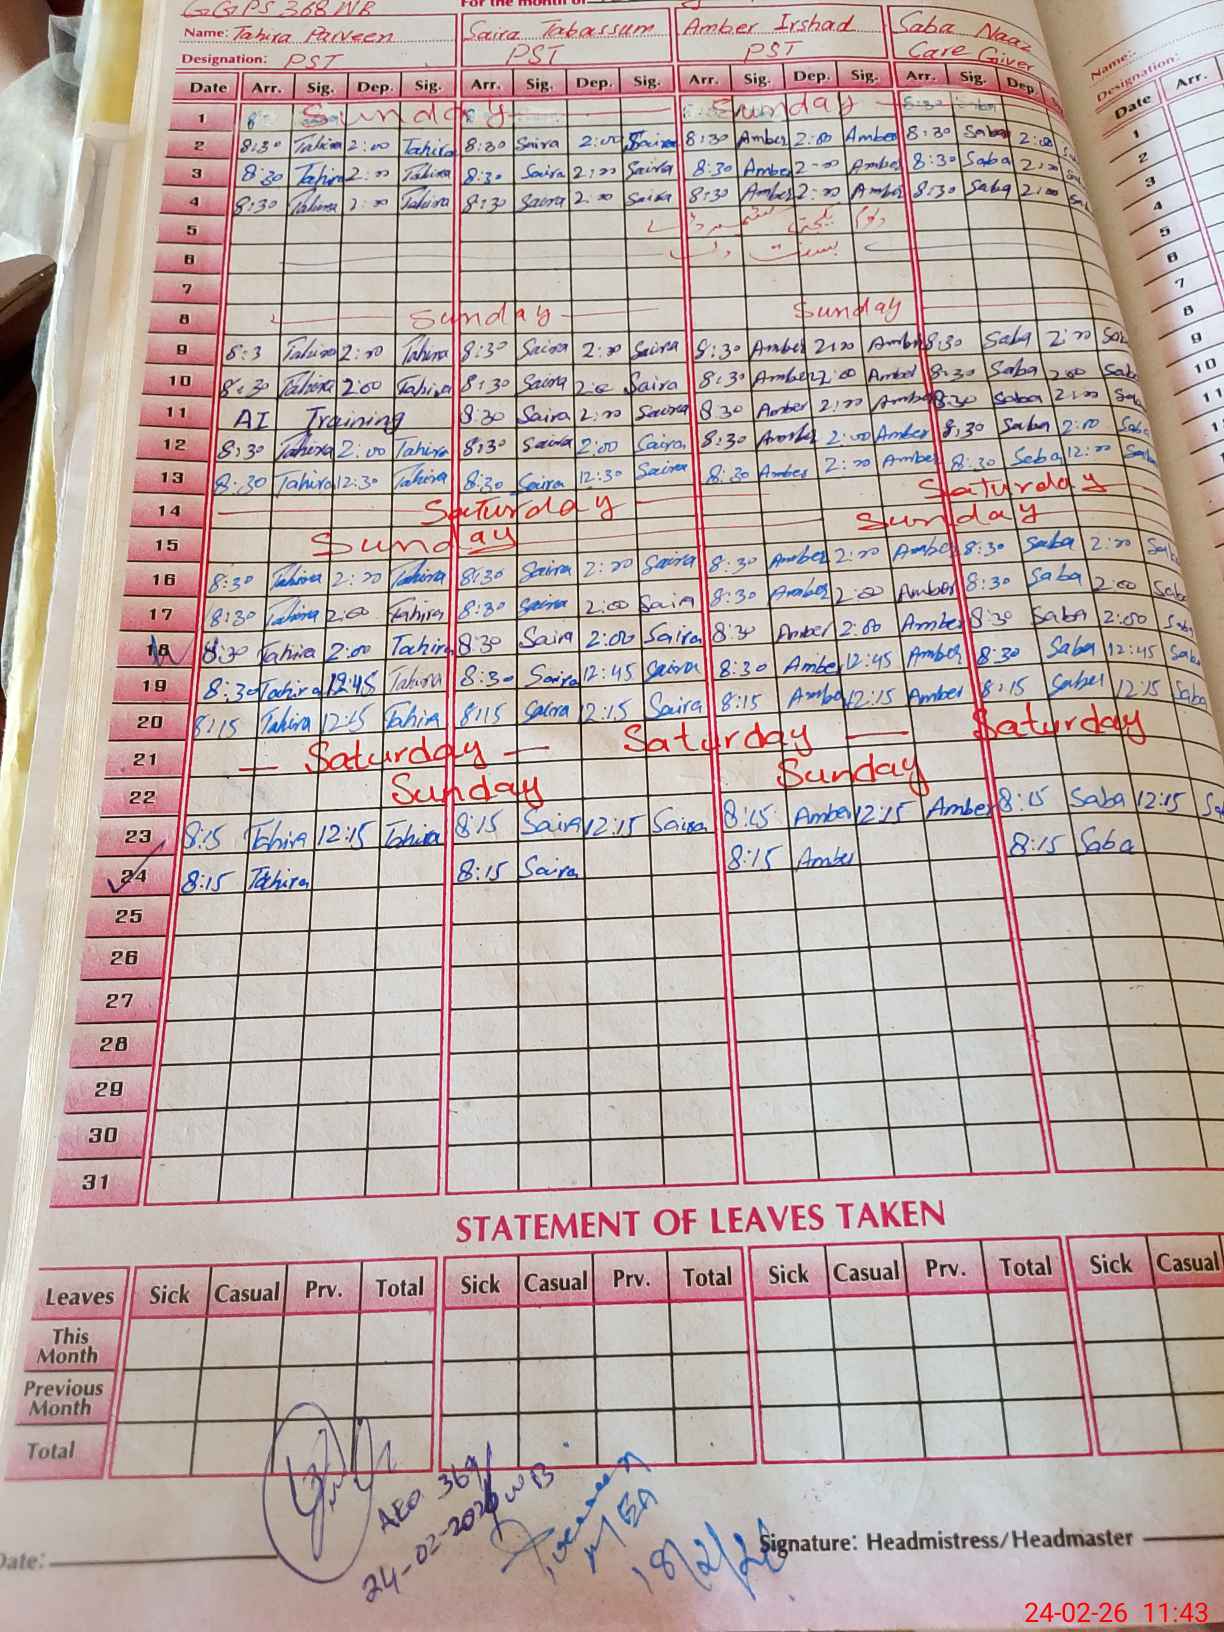 GGPS 368/WB For the month of
Name: Tahira Parveen Saira Tabassum Amber Irshad Saba Naaz Name:
Designation: PST PST PST Care Giver Designation:
Date Arr. Sig. Dep. Sig. Arr. Sig. Dep. Sig. Arr. Sig. Dep. Sig. Arr. Sig. Dep. Date Arr.
1 Sunday Sunday 1
2 8:30 Tahira 2:00 Tahira 8:30 Saira 2:00 Saira 8:30 Amber 2:00 Amber 8:30 Saba 2:00 2
3 8:30 Tahira 2:00 Tahira 8:30 Saira 2:00 Saira 8:30 Amber 2:00 Amber 8:30 Saba 2:00 3
4 8:30 Tahira 2:00 Tahira 8:30 Saira 2:00 Saira 8:30 Amber 2:00 Amber 8:30 Saba 2:00 4
5 5
6 6
7 7
8 Sunday Sunday 8
9 8:3 Tahira 2:00 Tahira 8:30 Saira 2:00 Saira 8:30 Amber 2:00 Amber 8:30 Saba 2:00 Sab 9
10 8:30 Tahira 2:00 Tahira 8:30 Saira 2:00 Saira 8:30 Amber 2:00 Amber 8:30 Saba 2:00 Sab 10
11 AI Training 8:30 Saira 2:00 Saira 8:30 Amber 2:00 Amber 8:30 Saba 2:00 Sab 11
12 8:30 Tahira 2:00 Tahira 8:30 Saira 2:00 Saira 8:30 Amber 2:00 Amber 8:30 Saba 2:00 Saba
13 8:30 Tahira 12:30 Tahira 8:30 Saira 12:30 Saira 8:30 Amber 2:00 Amber 8:30 Saba 12:00 Sab
14 Saturday Saturday
15 Sunday Sunday
16 8:30 Tahira 2:00 Tahira 8:30 Saira 2:00 Saira 8:30 Amber 2:00 Amber 8:30 Saba 2:00 Sab
17 8:30 Tahira 2:00 Tahira 8:30 Saira 2:00 Saira 8:30 Amber 2:00 Amber 8:30 Saba 2:00 Sab
18 8:30 Tahira 2:00 Tahira 8:30 Saira 2:00 Saira 8:30 Amber 2:00 Amber 8:30 Saba 2:00 Sab
19 8:30 Tahira 12:45 Tahira 8:30 Saira 12:45 Saira 8:30 Amber 12:45 Amber 8:30 Saba 12:45 Sab
20 8:15 Tahira 12:15 Tahira 8:15 Saira 12:15 Saira 8:15 Amber 12:15 Amber 8:15 Saba 12:15 Saba
21 Saturday Saturday Saturday
22 Sunday Sunday
23 8:15 Tahira 12:15 Tahira 8:15 Saira 12:15 Saira 8:15 Amber 12:15 Amber 8:15 Saba 12:15 Sa
24 8:15 Tahira 8:15 Saira 8:15 Amber 8:15 Saba
25
26
27
28
29
30
31
STATEMENT OF LEAVES TAKEN
Leaves Sick Casual Prv. Total Sick Casual Prv. Total Sick Casual Prv. Total Sick Casual
This Month
Previous Month
Total
AEO 369/WB
24-02-2026
MEA
18/2/26
Date: Signature: Headmistress/Headmaster
24-02-26 11:43